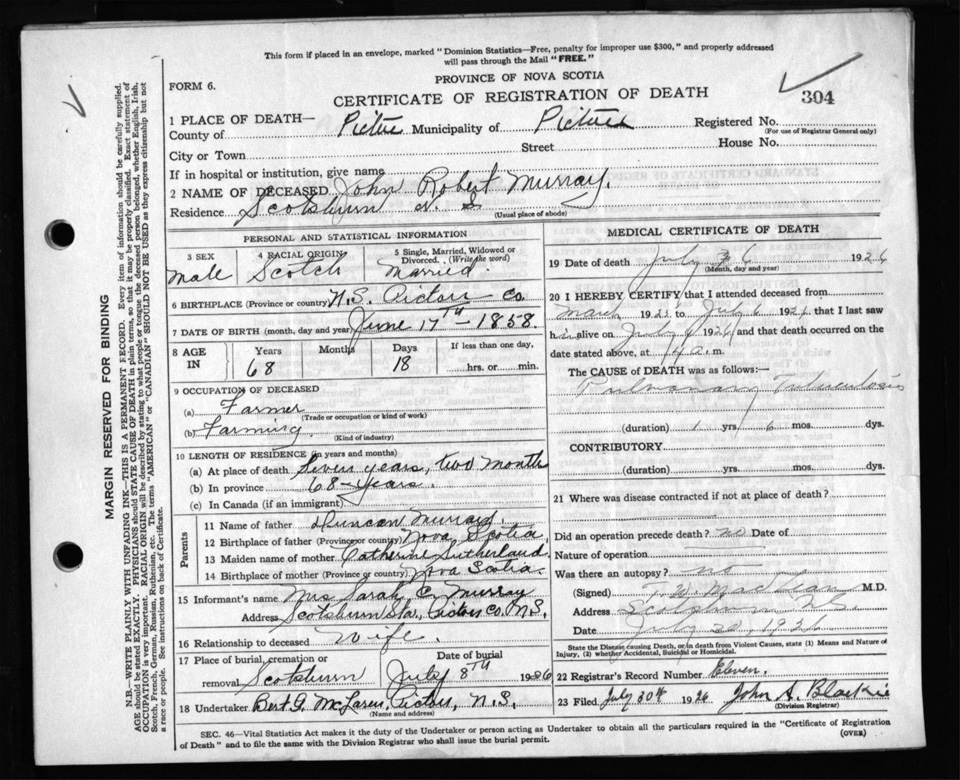 This form if placed in an envelope, marked "Dominion Statistics—Free, penalty for improper use $300," and properly addressed
will pass through the Mail "FREE."
PROVINCE OF NOVA SCOTIA
FORM 6.
CERTIFICATE OF REGISTRATION OF DEATH
304
1 PLACE OF DEATH—
County of Pictou Municipality of Pictou Registered No.
(For use of Registrar General only)
City or Town Street House No.
If in hospital or institution, give name
2 NAME OF DECEASED John Robert Murray.
Residence Scotsburn N. S
(Usual place of abode)
PERSONAL AND STATISTICAL INFORMATION
3 SEX Male
4 RACIAL ORIGIN Scotch
5 Single, Married, Widowed or
Divorced. (Write the word)
Married.
6 BIRTHPLACE (Province or country) N.S. Pictou Co
7 DATE OF BIRTH (month, day and year) June 17TH – 1858.
8 AGE IN
Years Months Days If less than one day,
68 18 hrs. or min.
9 OCCUPATION OF DECEASED
(a) Farmer
(Trade or occupation or kind of work)
(b) Farming.
(Kind of industry)
10 LENGTH OF RESIDENCE (in years and months)
(a) At place of death Seven years, two month
(b) In province 68 – years.
(c) In Canada (if an immigrant)
Parents
11 Name of father Duncan Murray.
12 Birthplace of father (Province or country) Nova Scotia
13 Maiden name of mother Catherine Sutherland.
14 Birthplace of mother (Province or country) Nova Scotia.
15 Informant's name Mrs Sarah C. Murray
Address Scotsburn Sta, Pictou Co. N.S.
16 Relationship to deceased Wife.
17 Place of burial, cremation or Date of burial
removal Scotsburn July 8TH 1926
18 Undertaker Bert G. McLaren, Pictou, N.S.
(Name and address)
MEDICAL CERTIFICATE OF DEATH
19 Date of death July 6 1926
(Month, day and year)
20 I HEREBY CERTIFY that I attended deceased from
March 1925 to July 6 1926 that I last saw
him alive on July 1926 and that death occurred on the
date stated above, at m.
The CAUSE of DEATH was as follows:—
Pulmonary Tuberculosis
(duration) 1 yrs. 6 mos. dys.
CONTRIBUTORY.
(duration) yrs. mos. dys.
21 Where was disease contracted if not at place of death?
Did an operation precede death? no Date of
Nature of operation
Was there an autopsy? no
(Signed) MacLean M.D.
Address Scotsburn N.S.
Date July 20 1926
State the Disease causing Death, or in death from Violent Causes, state (1) Means and Nature of
Injury, (2) whether Accidental, Suicidal or Homicidal.
22 Registrar's Record Number Eleven.
23 Filed July 30th 1926 John A. Blackie
(Division Registrar)
SEC. 46—Vital Statistics Act makes it the duty of the Undertaker or person acting as Undertaker to obtain all the particulars required in the "Certificate of Registration
of Death" and to file the same with the Division Registrar who shall issue the burial permit.
(OVER)
MARGIN RESERVED FOR BINDING
N.B.—WRITE PLAINLY WITH UNFADING INK—THIS IS A PERMANENT RECORD. Every item of information should be carefully supplied.
AGE should be stated EXACTLY. PHYSICIANS should STATE CAUSE OF DEATH in plain terms, so that it may be properly classified. Exact statement of
OCCUPATION is very important. RACIAL ORIGIN will be described by stating to what people or tongue the deceased person belonged, whether English, Irish,
Scotch, French, German, Russian, Ruthenian, etc. The terms "AMERICAN" or "CANADIAN" SHOULD NOT BE USED as they express citizenship but not
a race or people. See instructions on back of Certificate.